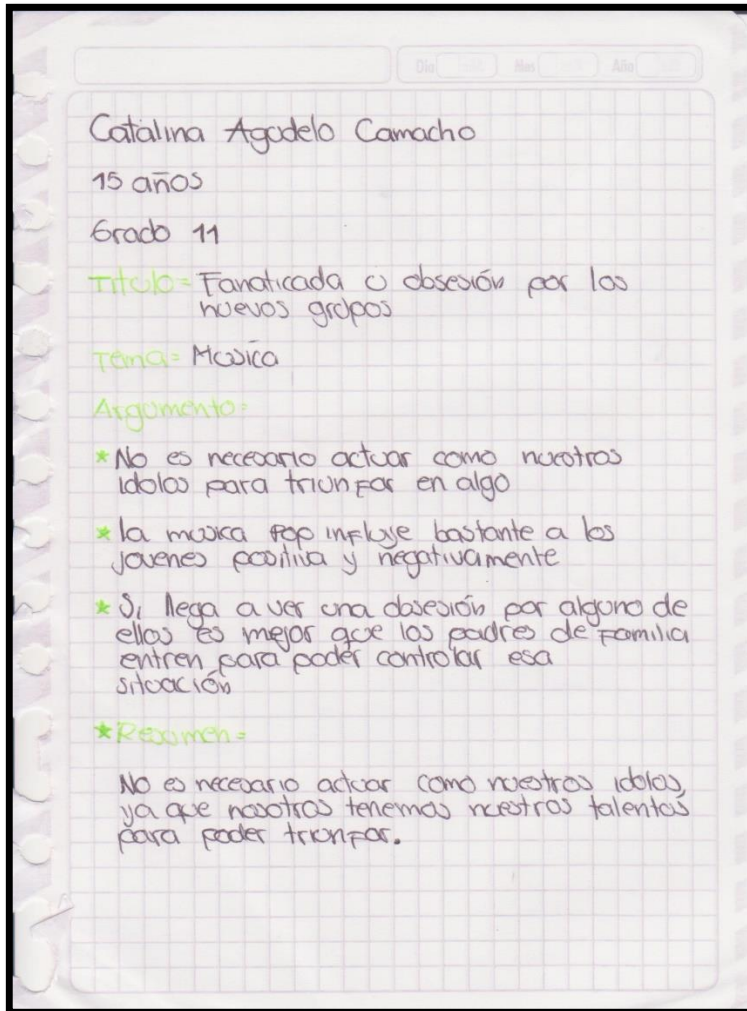 Día Mes Año
Catalina Agudelo Camacho
15 años
Grado 11
Titulo= Fanaticada u obsesión por los
nuevos grupos
Tema= Musica
Argumento=
* No es necesario actuar como nuestros
idolos para triunfar en algo
* la musica pop influye bastante a los
jovenes positiva y negativamente
* Si llega a ver una obsesión por alguno de
ellos es mejor que los padres de familia
entren para poder controlar esa
situación
* Resumen=
No es necesario actuar como nuestros idolos,
ya que nosotros tenemos nuestros talentos
para poder triunfar.